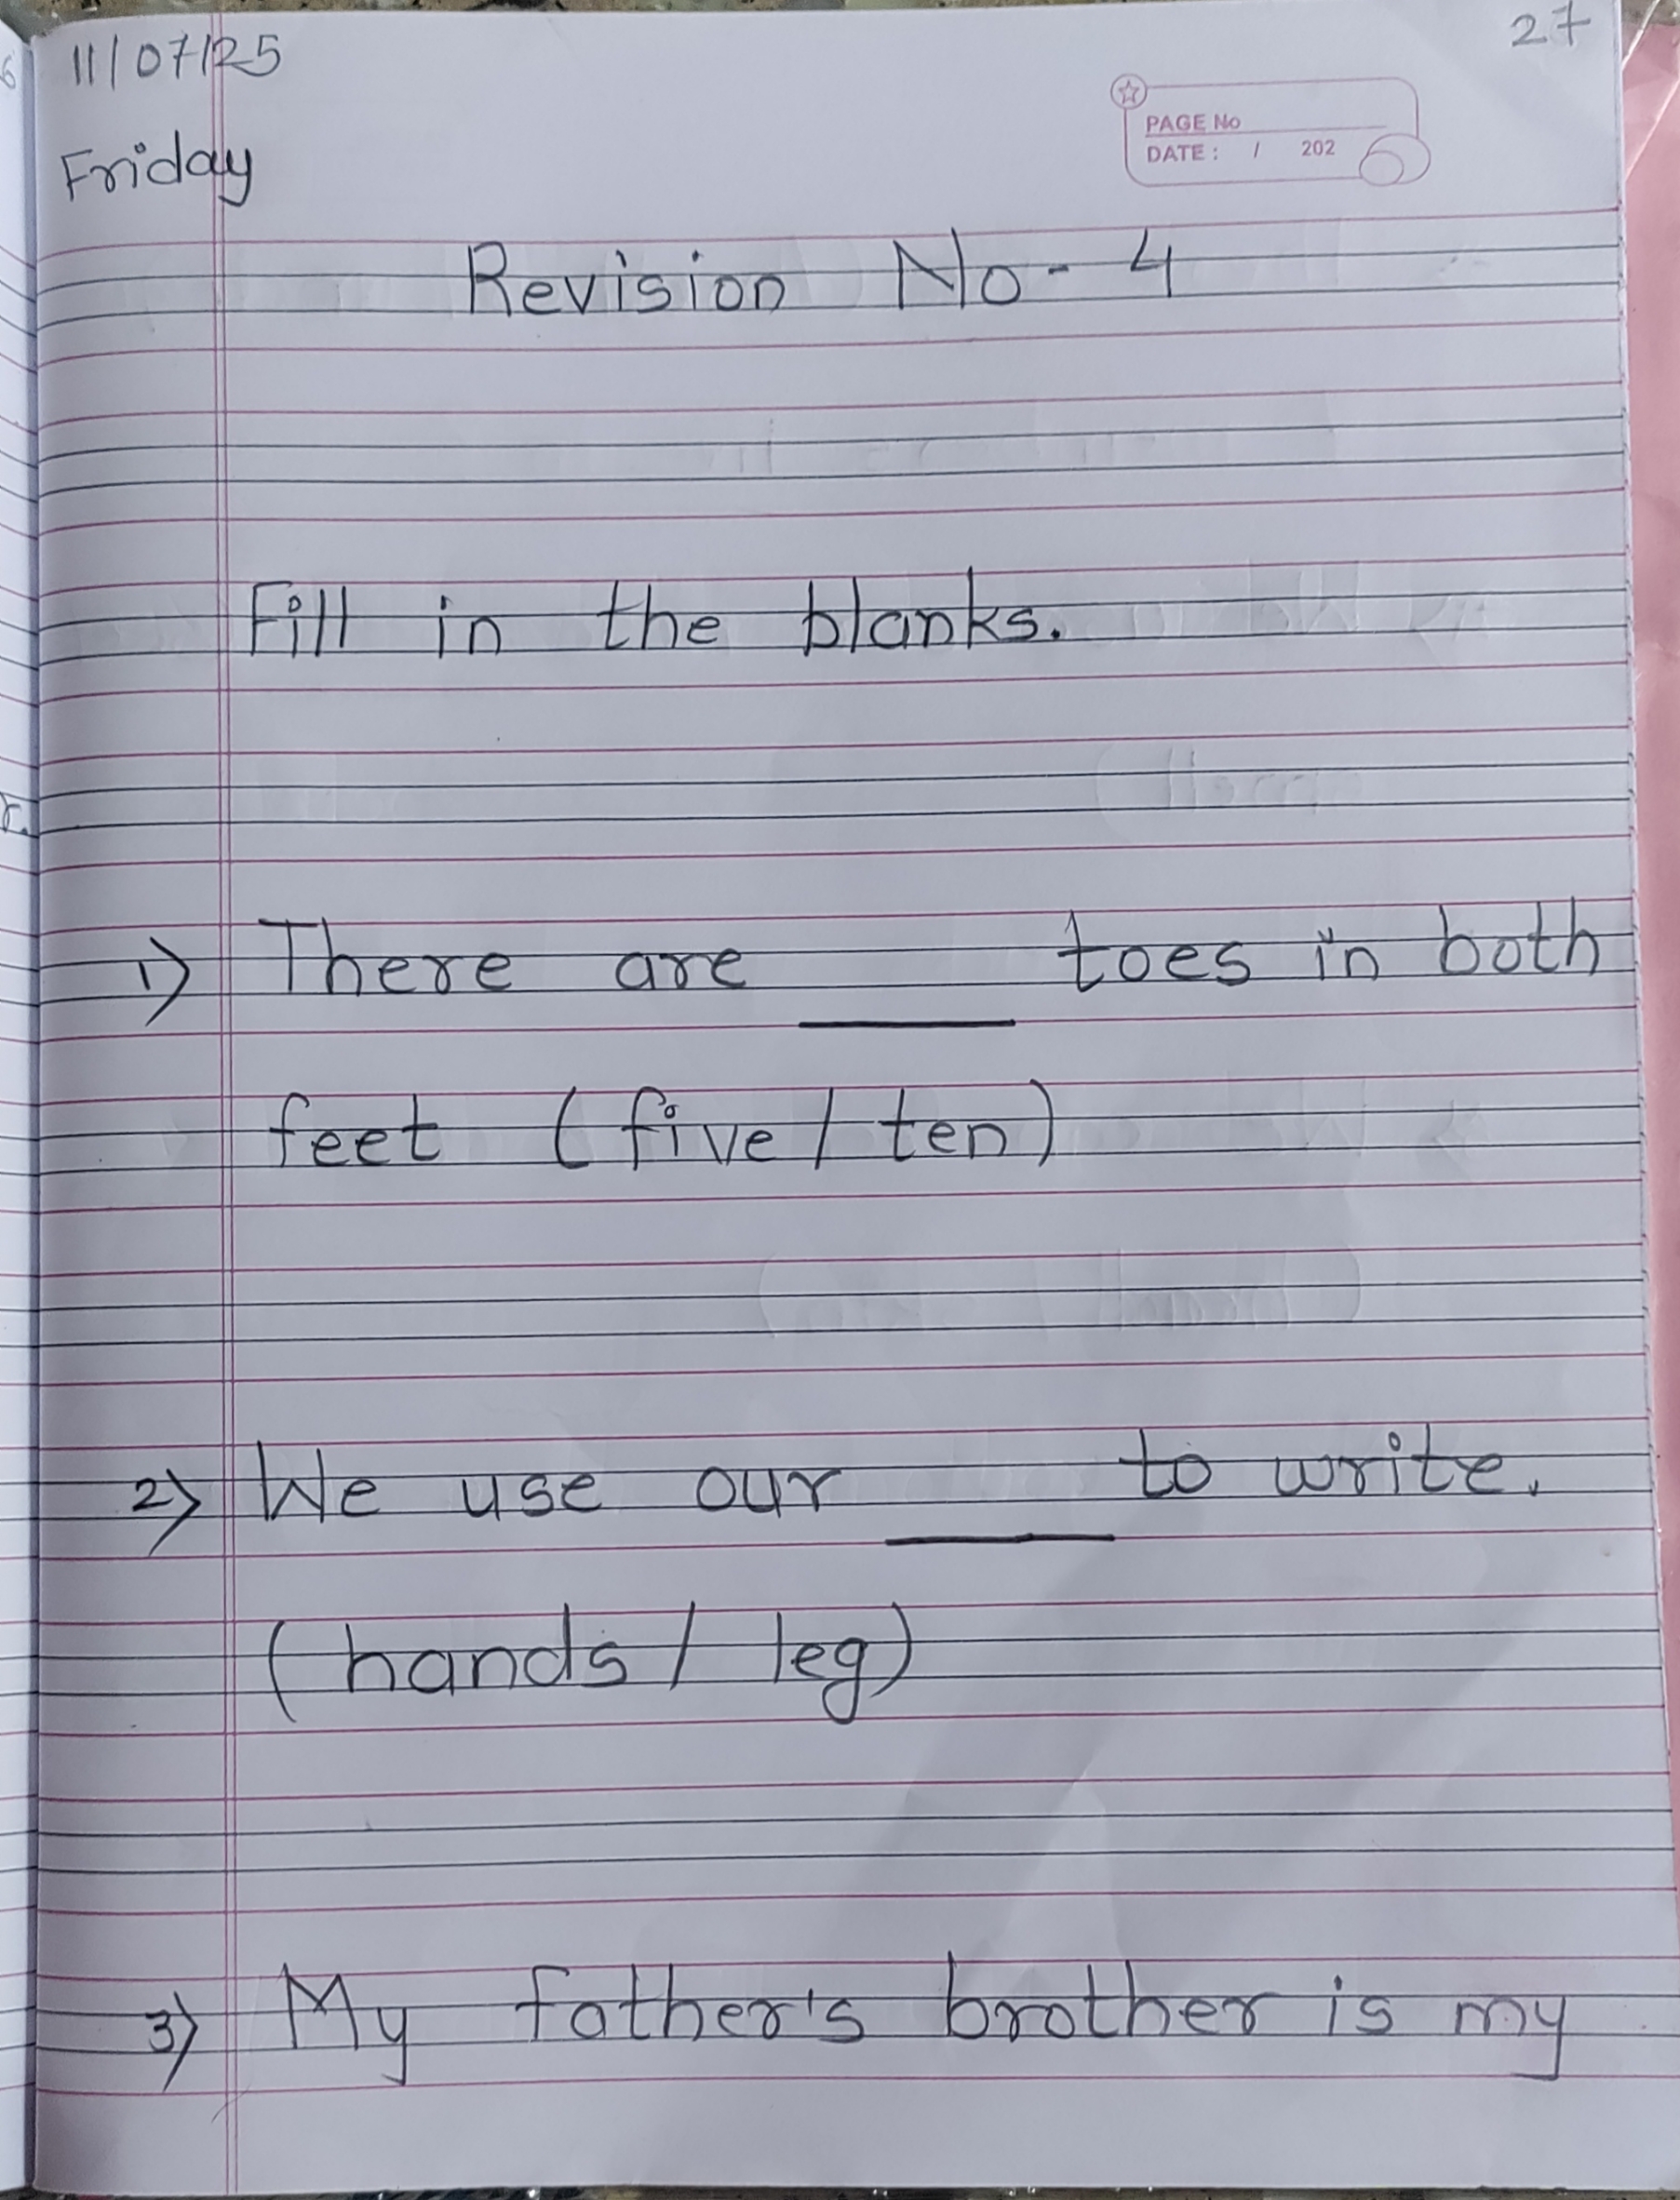 11/07/25
27
Friday
PAGE No
DATE : / 202
Revision No - 4
Fill in the blanks.
1) There are ____ toes in both
feet (five / ten)
2) We use our ____ to write.
(hands / leg)
3) My father's brother is my